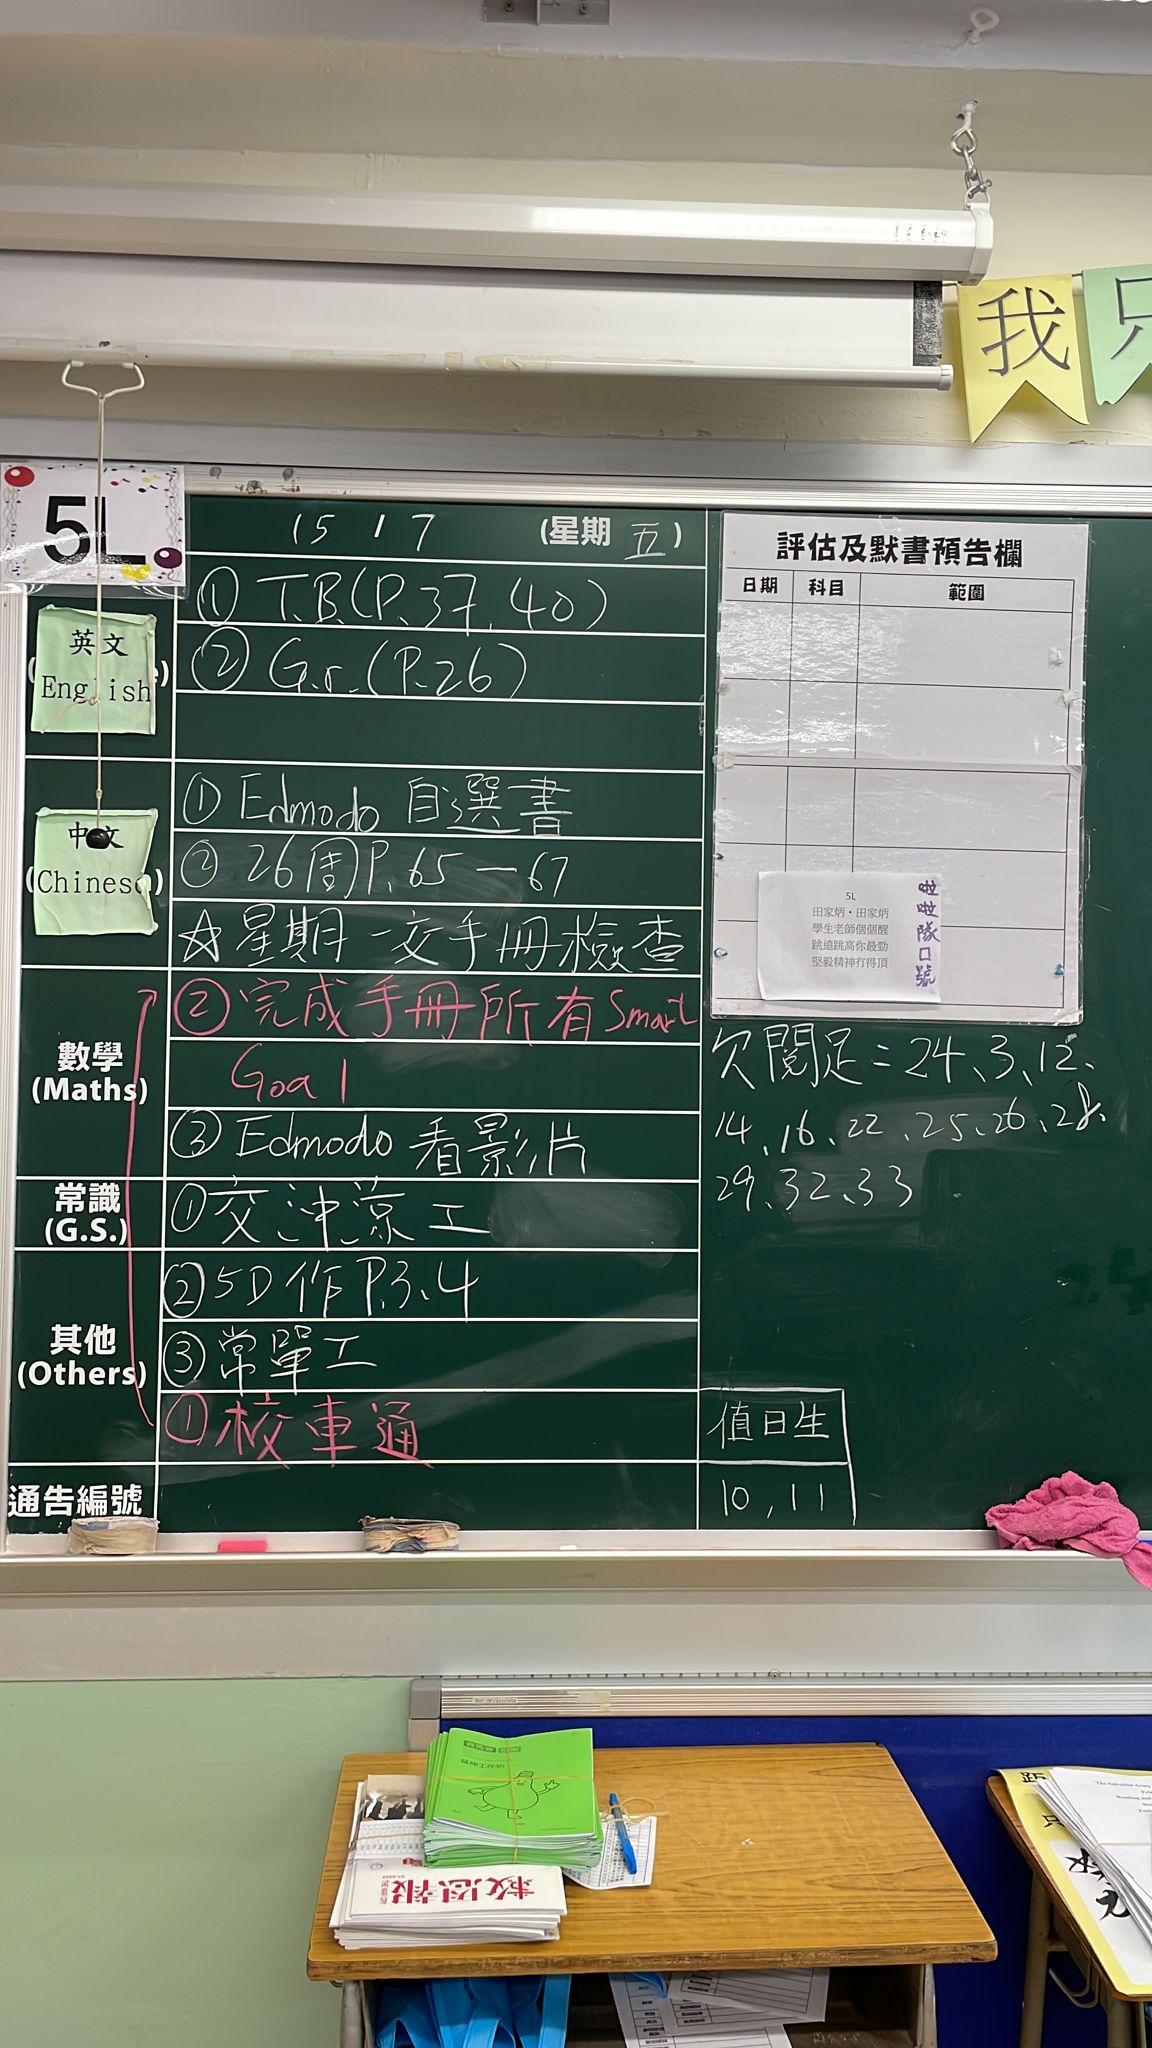 我 只
5L
15 1 7 (星期 五)
英文
English
① T.B.(P.37, 40)
② Gr.(P.26)
中文
(Chinese)
① Edmodo 自選書
② 26周P.65－67
☆星期一交手冊檢查
數學
(Maths)
②完成手冊所有Smart
Goal
③ Edmodo 看影片
常識
(G.S.)
①交沖涼工
其他
(Others)
②5D作P.3、4
③常單工
①校車通
通告編號
評估及默書預告欄
日期 科目 範圍
5L
田家炳・田家炳
學生老師個個醒
跳遠跳高你最勁
堅毅精神冇得頂
啦啦隊口號
欠閱足=24、3、12、
14、16、22、25、26、28、
29、32、33
值日生
10,11
救恩報